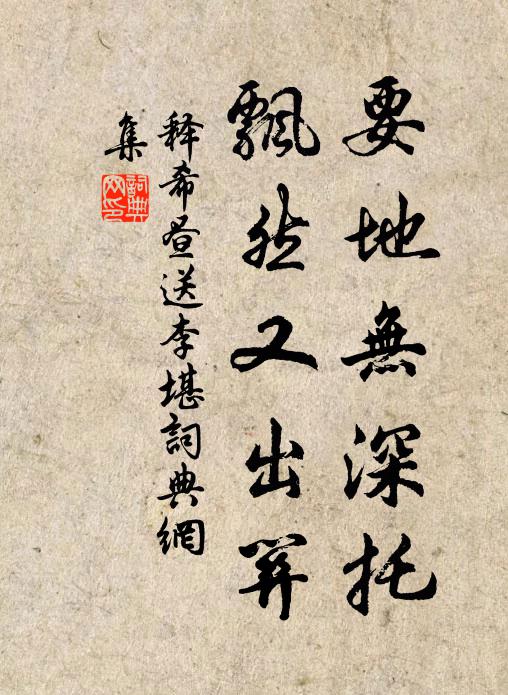 要地無深托
飄然又出關
释希晝送李堪詞典網
集
詞典
网印